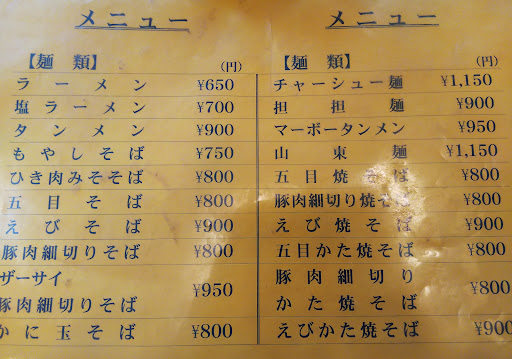 メニュー
【麺類】 (円)
ラーメン ¥650
塩ラーメン ¥700
タンメン ¥900
もやしそば ¥750
ひき肉みそそば ¥800
五目そば ¥800
えびそば ¥900
豚肉細切りそば ¥800
ザーサイ
豚肉細切りそば ¥950
かに玉そば ¥800
メニュー
【麺類】 (円)
チャーシュー麺 ¥1,150
担担麺 ¥900
マーボータンメン ¥950
山東麺 ¥1,150
五目焼そば ¥800
豚肉細切り焼そば ¥800
えび焼そば ¥900
五目かた焼そば ¥800
豚肉細切り
かた焼そば ¥800
えびかた焼そば ¥900